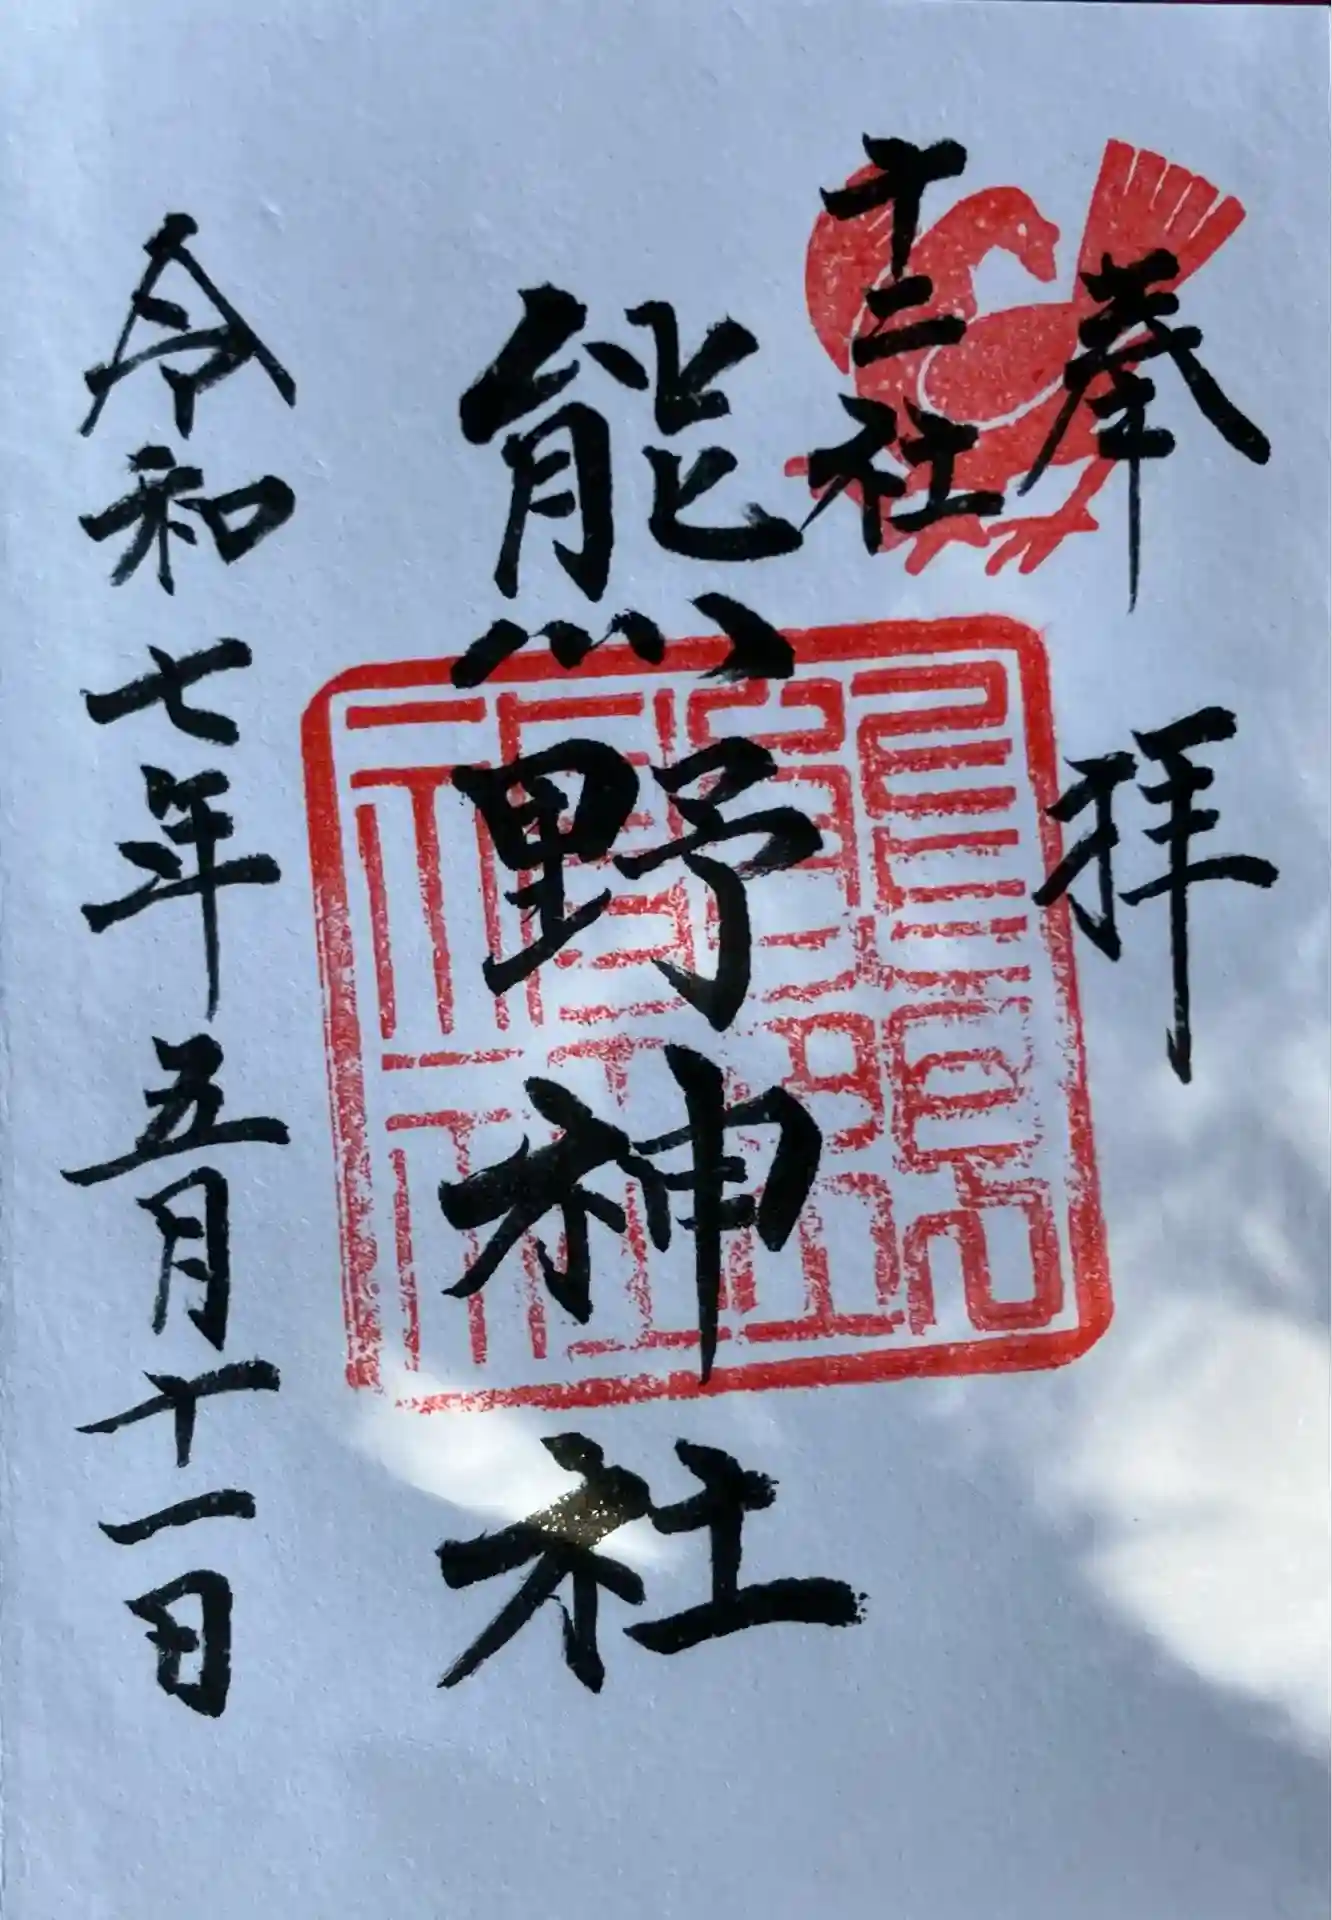 奉拝
十二社
熊野神社
令和七年五月十一日